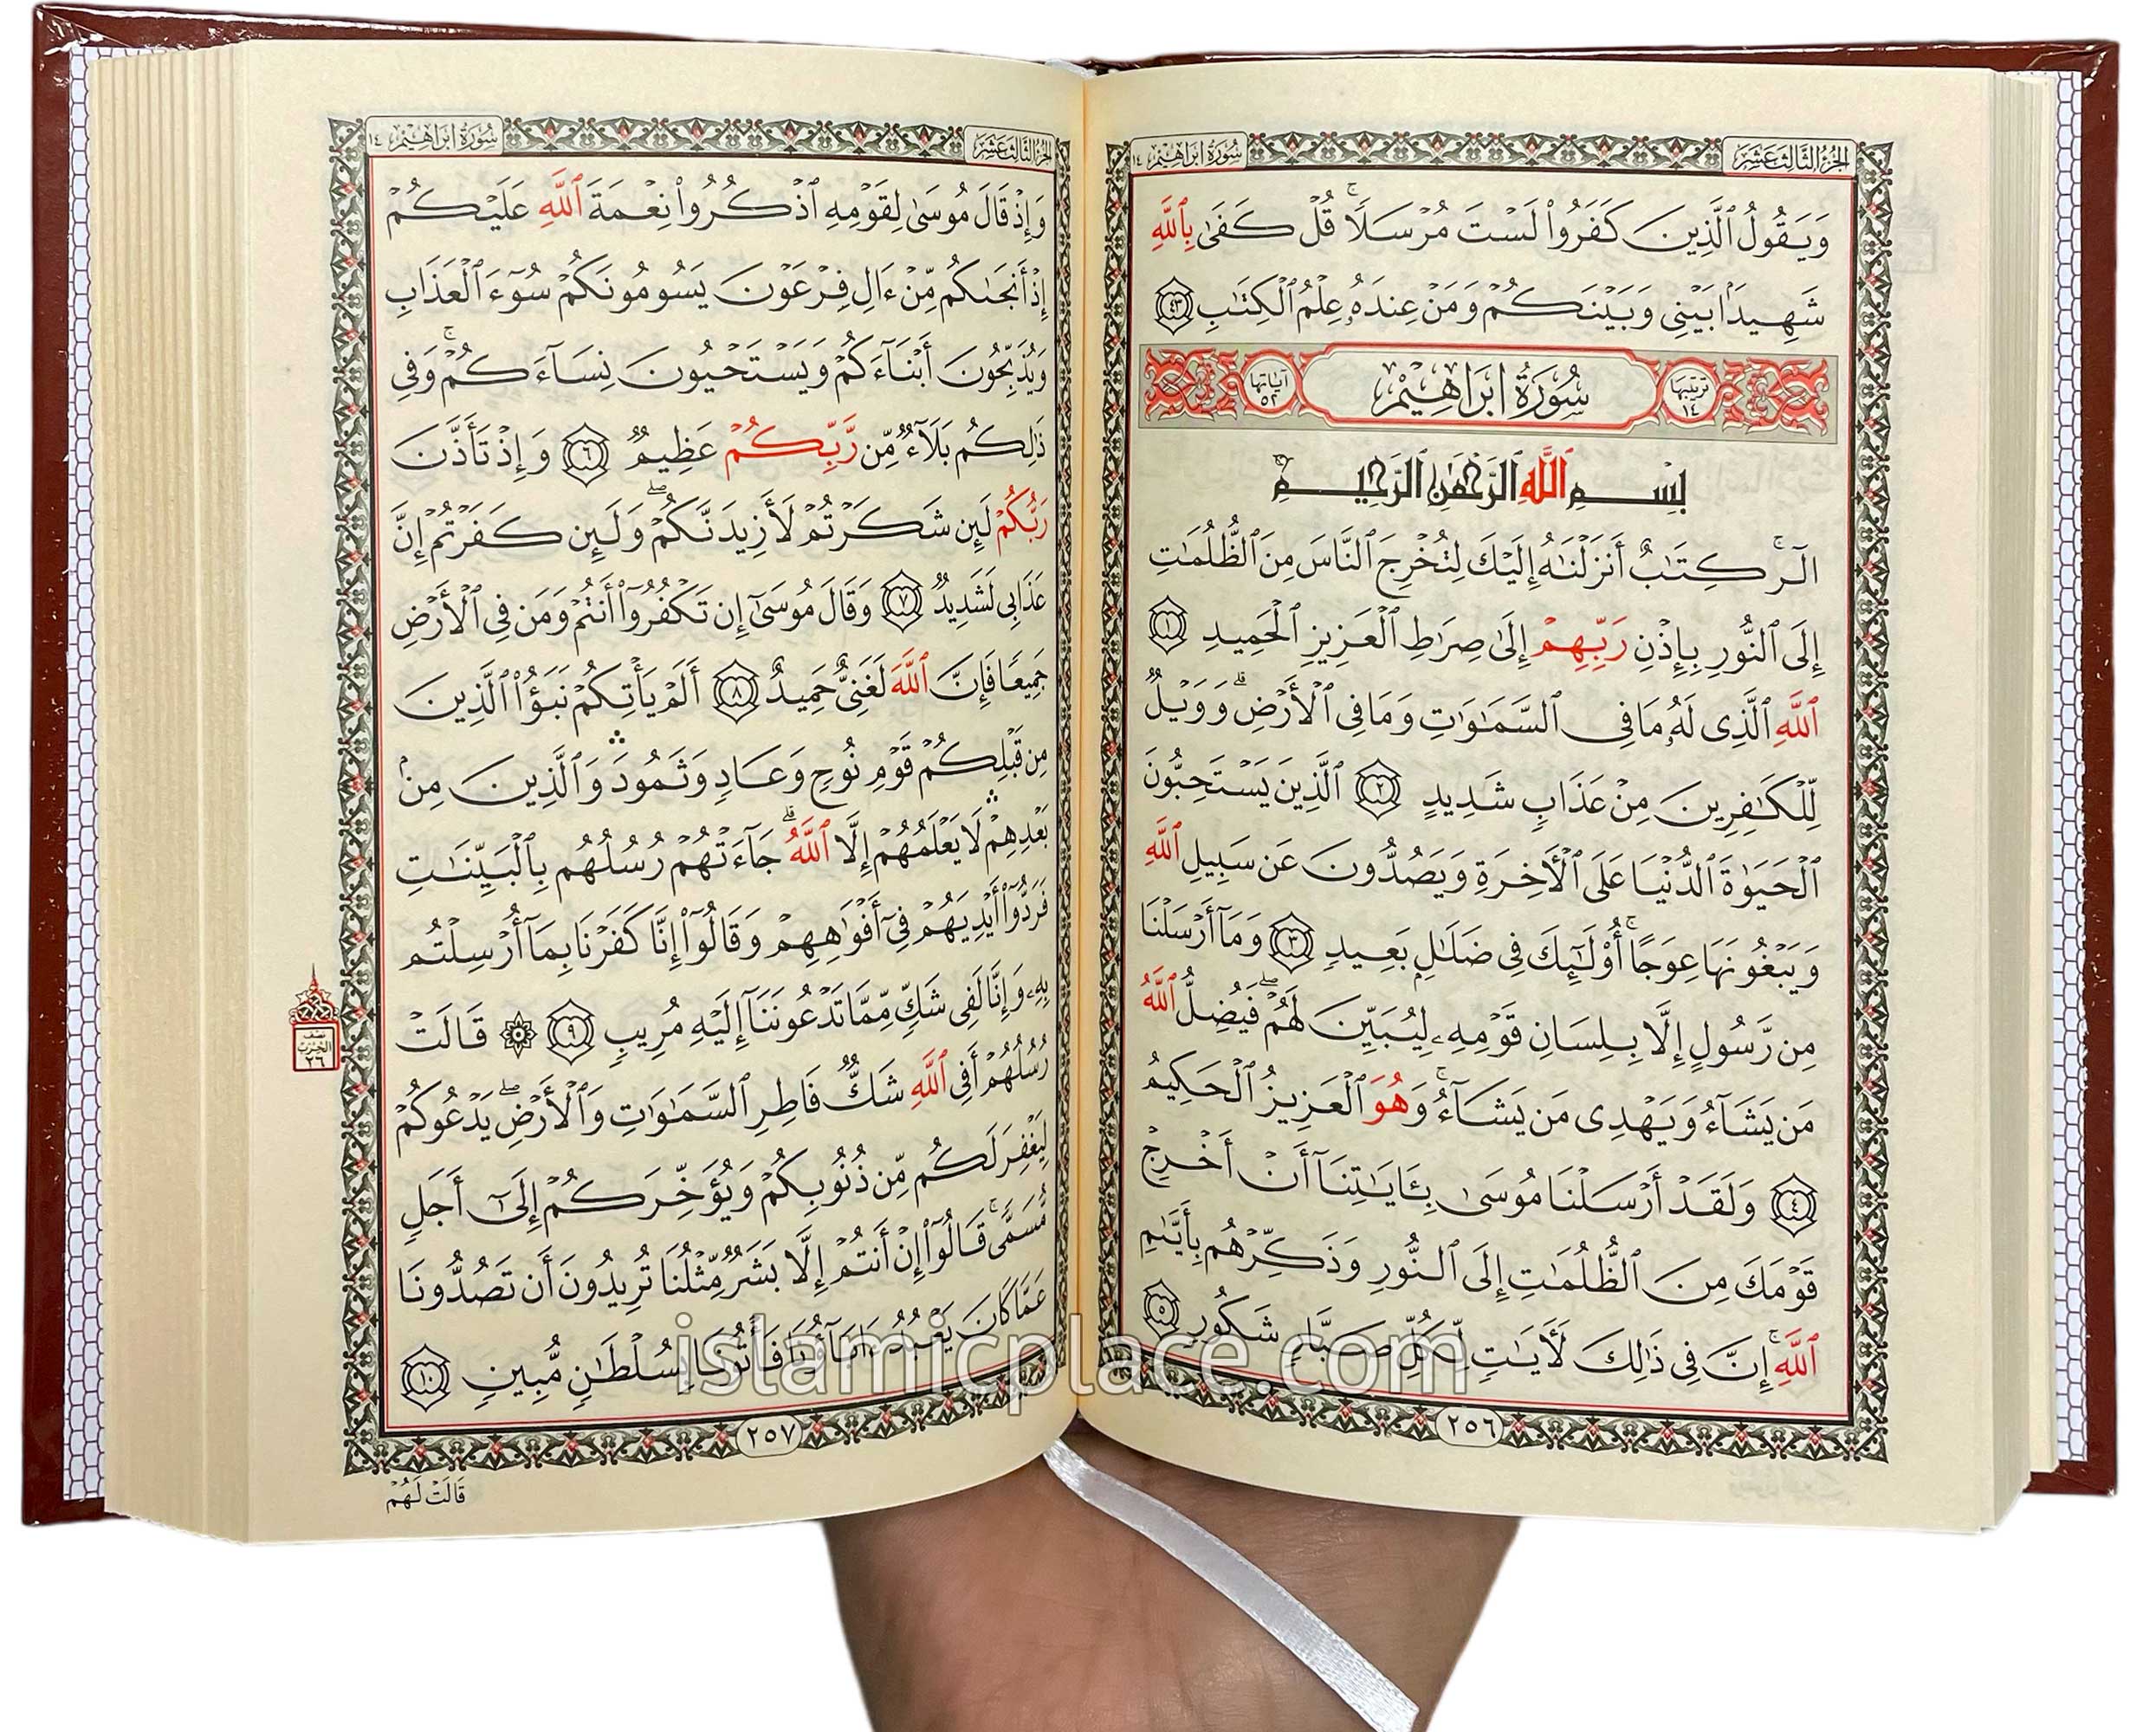 الجزء الثالث عشر
سورة ابراهيم ١٤
وَيَقُولُ ٱلَّذِينَ كَفَرُوا۟ لَسْتَ مُرْسَلًا ۚ قُلْ كَفَىٰ بِٱللَّهِ
شَهِيدًۢا بَيْنِى وَبَيْنَكُمْ وَمَنْ عِندَهُۥ عِلْمُ ٱلْكِتَٰبِ ٤٣
ترتيبها ١٤
سُورَةُ ابْرَاهِيْمْ
آياتها ٥٢
بِسْمِ ٱللَّهِ ٱلرَّحْمَٰنِ ٱلرَّحِيمِ
الٓر ۚ كِتَٰبٌ أَنزَلْنَٰهُ إِلَيْكَ لِتُخْرِجَ ٱلنَّاسَ مِنَ ٱلظُّلُمَٰتِ
إِلَى ٱلنُّورِ بِإِذْنِ رَبِّهِمْ إِلَىٰ صِرَٰطِ ٱلْعَزِيزِ ٱلْحَمِيدِ ١
ٱللَّهِ ٱلَّذِى لَهُۥ مَا فِى ٱلسَّمَٰوَٰتِ وَمَا فِى ٱلْأَرْضِ ۗ وَوَيْلٌ
لِّلْكَٰفِرِينَ مِنْ عَذَابٍ شَدِيدٍ ٢ ٱلَّذِينَ يَسْتَحِبُّونَ
ٱلْحَيَوٰةَ ٱلدُّنْيَا عَلَى ٱلْءَاخِرَةِ وَيَصُدُّونَ عَن سَبِيلِ ٱللَّهِ
وَيَبْغُونَهَا عِوَجًا ۚ أُو۟لَٰٓئِكَ فِى ضَلَٰلٍۭ بَعِيدٍ ٣ وَمَآ أَرْسَلْنَا
مِن رَّسُولٍ إِلَّا بِلِسَانِ قَوْمِهِۦ لِيُبَيِّنَ لَهُمْ ۖ فَيُضِلُّ ٱللَّهُ
مَن يَشَآءُ وَيَهْدِى مَن يَشَآءُ ۚ وَهُوَ ٱلْعَزِيزُ ٱلْحَكِيمُ
٤ وَلَقَدْ أَرْسَلْنَا مُوسَىٰ بِـَٔايَٰتِنَآ أَنْ أَخْرِجْ
قَوْمَكَ مِنَ ٱلظُّلُمَٰتِ إِلَى ٱلنُّورِ وَذَكِّرْهُم بِأَيَّىٰمِ
ٱللَّهِ ۚ إِنَّ فِى ذَٰلِكَ لَءَايَٰتٍ لِّكُلِّ صَبَّارٍ شَكُورٍ ٥
٢٥٦
الجزء الثالث عشر
سورة ابراهيم ١٤
وَإِذْ قَالَ مُوسَىٰ لِقَوْمِهِ ٱذْكُرُوا۟ نِعْمَةَ ٱللَّهِ عَلَيْكُمْ
إِذْ أَنجَىٰكُم مِّنْ ءَالِ فِرْعَوْنَ يَسُومُونَكُمْ سُوٓءَ ٱلْعَذَابِ
وَيُذَبِّحُونَ أَبْنَآءَكُمْ وَيَسْتَحْيُونَ نِسَآءَكُمْ ۚ وَفِى
ذَٰلِكُم بَلَآءٌ مِّن رَّبِّكُمْ عَظِيمٌ ٦ وَإِذْ تَأَذَّنَ
رَبُّكُمْ لَئِن شَكَرْتُمْ لَأَزِيدَنَّكُمْ ۖ وَلَئِن كَفَرْتُمْ إِنَّ
عَذَابِى لَشَدِيدٌ ٧ وَقَالَ مُوسَىٰٓ إِن تَكْفُرُوٓا۟ أَنتُمْ وَمَن فِى ٱلْأَرْضِ
جَمِيعًا فَإِنَّ ٱللَّهَ لَغَنِىٌّ حَمِيدٌ ٨ أَلَمْ يَأْتِكُمْ نَبَؤُا۟ ٱلَّذِينَ
مِن قَبْلِكُمْ قَوْمِ نُوحٍ وَعَادٍ وَثَمُودَ ۛ وَٱلَّذِينَ مِنۢ
بَعْدِهِمْ ۛ لَا يَعْلَمُهُمْ إِلَّا ٱللَّهُ ۗ جَآءَتْهُمْ رُسُلُهُم بِٱلْبَيِّنَٰتِ
فَرَدُّوٓا۟ أَيْدِيَهُمْ فِىٓ أَفْوَٰهِهِمْ وَقَالُوٓا۟ إِنَّا كَفَرْنَا بِمَآ أُرْسِلْتُم
بِهِۦ وَإِنَّا لَفِى شَكٍّ مِّمَّا تَدْعُونَنَآ إِلَيْهِ مُرِيبٍ ٩ ۞ قَالَتْ
رُسُلُهُمْ أَفِى ٱللَّهِ شَكٌّ فَاطِرِ ٱلسَّمَٰوَٰتِ وَٱلْأَرْضِ ۖ يَدْعُوكُمْ
لِيَغْفِرَ لَكُم مِّن ذُنُوبِكُمْ وَيُؤَخِّرَكُمْ إِلَىٰٓ أَجَلٍ
مُّسَمًّى ۚ قَالُوٓا۟ إِنْ أَنتُمْ إِلَّا بَشَرٌ مِّثْلُنَا تُرِيدُونَ أَن تَصُدُّونَا
عَمَّا كَانَ يَعْبُدُ ءَابَآؤُنَا فَأْتُونَا بِسُلْطَٰنٍ مُّبِينٍ ١٠
نصف
الحزب
٢٦
٢٥٧
قَالَتْ لَهُمْ
islamicplace.com